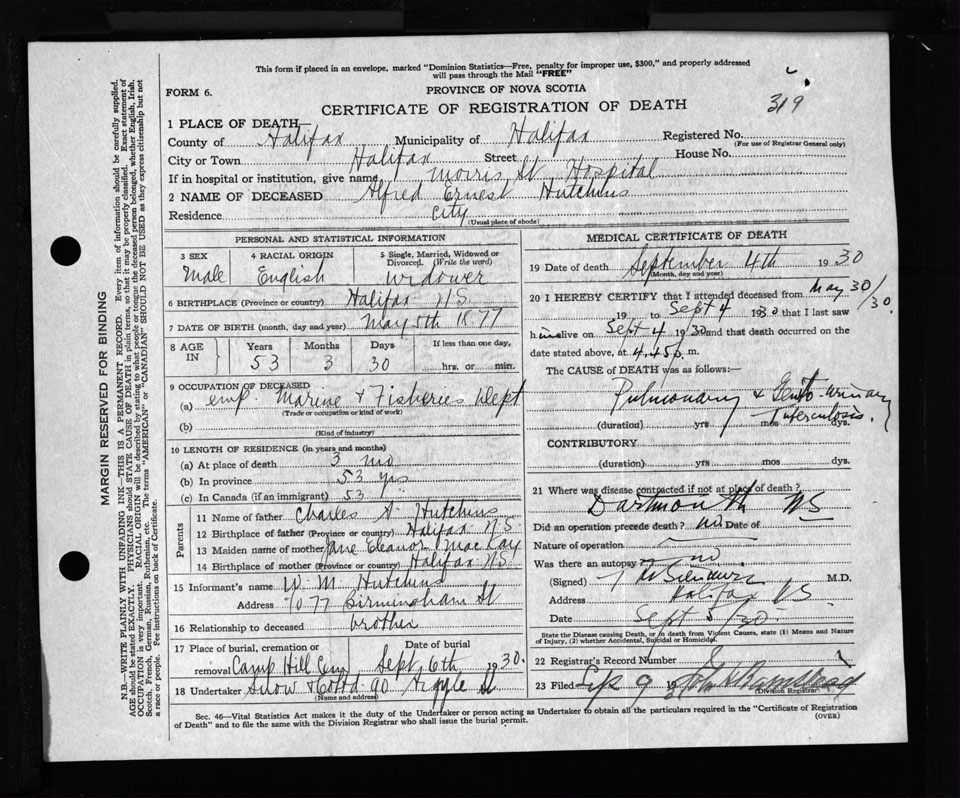 This form if placed in an envelope, marked "Dominion Statistics—Free, penalty for improper use, $300," and properly addressed
will pass through the Mail "FREE"
FORM 6.
PROVINCE OF NOVA SCOTIA
319
CERTIFICATE OF REGISTRATION OF DEATH
1 PLACE OF DEATH—
County of Halifax Municipality of Halifax Registered No.
(For use of Registrar General only)
City or Town Halifax Street House No.
If in hospital or institution, give name Morris St Hospital
2 NAME OF DECEASED Alfred Ernest Hutchins
Residence City
(Usual place of abode)
PERSONAL AND STATISTICAL INFORMATION
3 SEX 4 RACIAL ORIGIN 5 Single, Married, Widowed or Divorced. (Write the word)
Male English widower
6 BIRTHPLACE (Province or country) Halifax N.S.
7 DATE OF BIRTH (month, day and year) May 5th 1877
8 AGE IN Years Months Days If less than one day,
53 3 30 hrs. or min.
9 OCCUPATION OF DECEASED
(a) emp. Marine & Fisheries Dept
(Trade or occupation or kind of work)
(b)
(Kind of industry)
10 LENGTH OF RESIDENCE (in years and months)
(a) At place of death 3 mo
(b) In province 53 yrs
(c) In Canada (if an immigrant) 53
Parents
11 Name of father Charles A. Hutchins
12 Birthplace of father (Province or country) Halifax N.S.
13 Maiden name of mother Jane Eleanor MacKay
14 Birthplace of mother (Province or country) Halifax N.S.
15 Informant's name W. M. Hutchins
Address 77 Birmingham St
16 Relationship to deceased brother
17 Place of burial, cremation or removal Camp Hill Cem Date of burial Sept 6th 1930.
18 Undertaker Snow & Co Ltd 90 Argyle St
(Name and address)
MEDICAL CERTIFICATE OF DEATH
19 Date of death September 4th 1930
(Month, day and year)
20 I HEREBY CERTIFY that I attended deceased from May 30/30.
19 to Sept 4 1930 that I last saw
him alive on Sept 4 1930 and that death occurred on the
date stated above, at 4.45 p. m.
The CAUSE of DEATH was as follows:—
Pulmonary & Genito-urinary
Tuberculosis.
(duration) yrs mos dys.
CONTRIBUTORY
(duration) yrs mos dys.
21 Where was disease contracted if not at place of death?
Dartmouth NS
Did an operation precede death? no Date of
Nature of operation
Was there an autopsy? no
(Signed) M.D.
Address Halifax NS.
Date Sept 5/30.
State the Disease causing Death, or in death from Violent Causes, state (1) Means and Nature
of Injury, (2) whether Accidental, Suicidal or Homicidal.
22 Registrar's Record Number
23 Filed Sep 9 19
Division Registrar
Sec. 46—Vital Statistics Act makes it the duty of the Undertaker or person acting as Undertaker to obtain all the particulars required in the "Certificate of Registration
of Death" and to file the same with the Division Registrar who shall issue the burial permit.
(OVER)
MARGIN RESERVED FOR BINDING
N.B.—WRITE PLAINLY WITH UNFADING INK—THIS IS A PERMANENT RECORD. Every item of information should be carefully supplied.
AGE should be stated EXACTLY. PHYSICIANS should STATE CAUSE OF DEATH in plain terms, so that it may be properly classified. Exact statement of
OCCUPATION is very important. RACIAL ORIGIN will be described by stating to what people or tongue the deceased person belonged, whether English, Irish,
Scotch, French, German, Russian, Ruthenian, etc. The terms "AMERICAN" or "CANADIAN" SHOULD NOT BE USED as they express citizenship but not
a race or people. Fee instructions on back of Certificate.